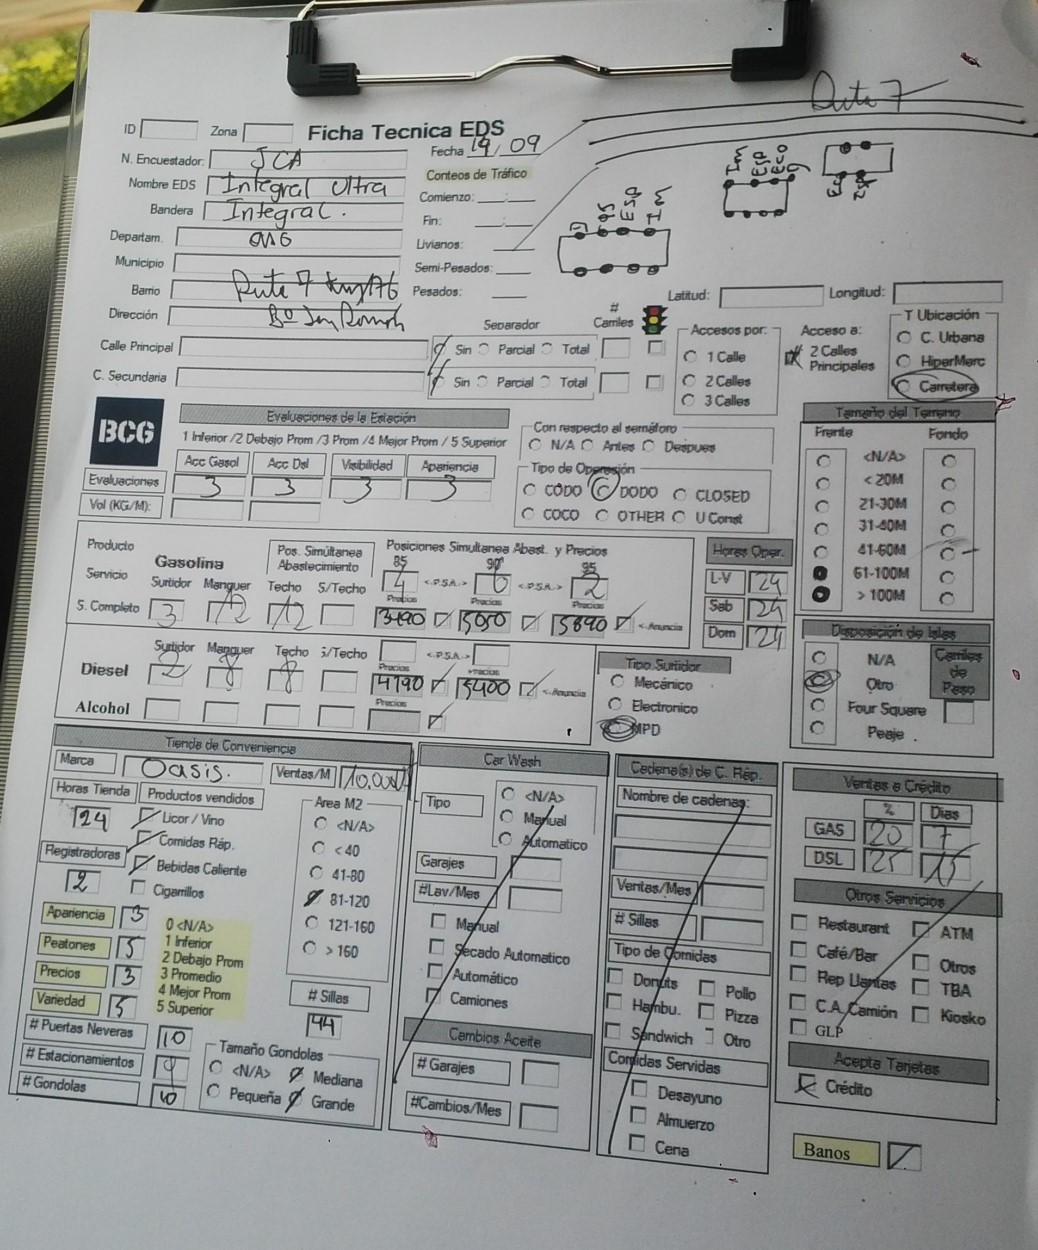 Ruta 7
ID Zona Ficha Tecnica EDS
N. Encuestador: JCA Fecha 19/09
Nombre EDS Integral Ultra Conteos de Tráfico
Bandera Integral. Comienzo: __:__
Departam. Fin: __:__
Municipio Livianos:
Barrio Ruta 7 Semi-Pesados:
Dirección Bo San Ramón Pesados:
Latitud: Longitud:
Calle Principal Separador # Carriles
Sin Parcial Total
C. Secundaria Sin Parcial Total
Accesos por:
1 Calle
2 Calles
3 Calles
Acceso a:
2 Calles Principales
T Ubicación
C. Urbana
HiperMerc
Carretera
BCG
Evaluaciones de la Estación
1 Inferior /2 Debajo Prom /3 Prom /4 Mejor Prom / 5 Superior
Acc Gasol Acc Dsl Visibilidad Apariencia
Evaluaciones 3 3 3 3
Vol (KG/M):
Con respecto al semáforo
N/A Antes Despues
Tipo de Operación
CODO DODO CLOSED
COCO OTHER U Const
Tamaño del Terreno
Frente Fondo
<N/A>
< 20M
21-30M
31-40M
41-60M
61-100M
> 100M
Producto Gasolina Pos. Simúltanea Abastecimiento Posiciones Simultanea Abast. y Precios
85 90 95
Servicio Surtidor Manguer Techo S/Techo 4 <.P.S.A.> 6 <.P.S.A.> 2
Precios Precios Precios
S. Completo 3 12 12 5050 5890 <.Anuncia
Surtidor Manguer Techo S/Techo <.P.S.A.>
Precios Precios
Diesel 2 8 8 4790 5400 <.Anuncia
Precios
Alcohol
Horas Oper.
L-V 24
Sab 24
Dom 24
Tipo Surtidor
Mecánico
Electronico
MPD
Disposición de Islas
N/A
Otro
Four Square
Peaje
Carriles de Paso
Tienda de Conveniencia
Marca Oasis. Ventas/M
Horas Tienda 24
Productos vendidos
Licor / Vino
Comidas Ráp.
Bebidas Caliente
Cigarrillos
Registradoras 2
Area M2
<N/A>
< 40
41-80
81-120
121-160
> 160
Apariencia 3
Peatones 5
Precios 3
Variedad 5
0 <N/A>
1 Inferior
2 Debajo Prom
3 Promedio
4 Mejor Prom
5 Superior
# Sillas
44
# Puertas Neveras 10
# Estacionamientos
# Gondolas 10
Tamaño Gondolas
<N/A> Mediana
Pequeña Grande
Car Wash
Tipo
<N/A>
Manual
Automatico
Garajes
#Lav/Mes
Manual
Secado Automatico
Automático
Camiones
Cambios Aceite
# Garajes
#Cambios/Mes
Cadena(s) de C. Ráp.
Nombre de cadenas:
Ventas/Mes
# Sillas
Tipo de Comidas
Donuts Pollo
Hambu. Pizza
Sandwich Otro
Comidas Servidas
Desayuno
Almuerzo
Cena
Ventas a Crédito
% Dias
GAS 20 7
DSL 25 15
Otros Servicios
Restaurant ATM
Café/Bar Otros
Rep Llantas TBA
C.A. Camión Kiosko
GLP
Acepta Tarjetas
Crédito
Banos